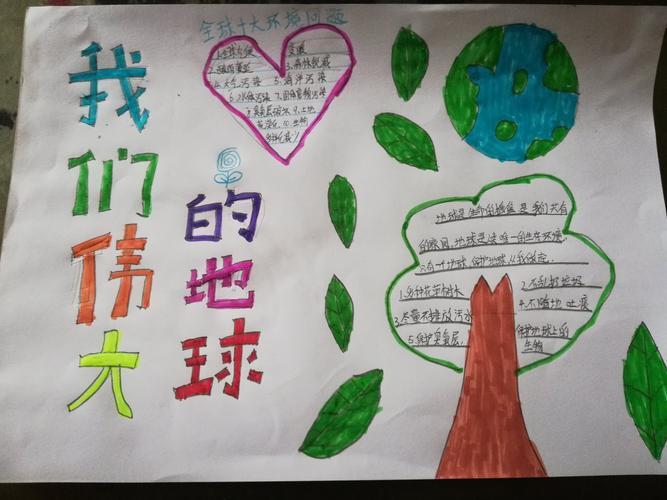 我们伟大
的地球
全球十大环境问题
1.全球气候变暖
3.森林锐减
4.大气污染 5.海洋污染
6.水体污染 7.固体废物污染
8.臭氧层破坏 9.土地
10.生物
减少
地球是生命的摇篮是我们共有
的家园,地球是唯一的生存环境.
只有一个地球,保护地球,从我做起.
1.多种花草树木 2.不乱扔垃圾
3.尽量不排放污水 4.不随地吐痰
5.保护臭氧层. 保护地球上的
生物